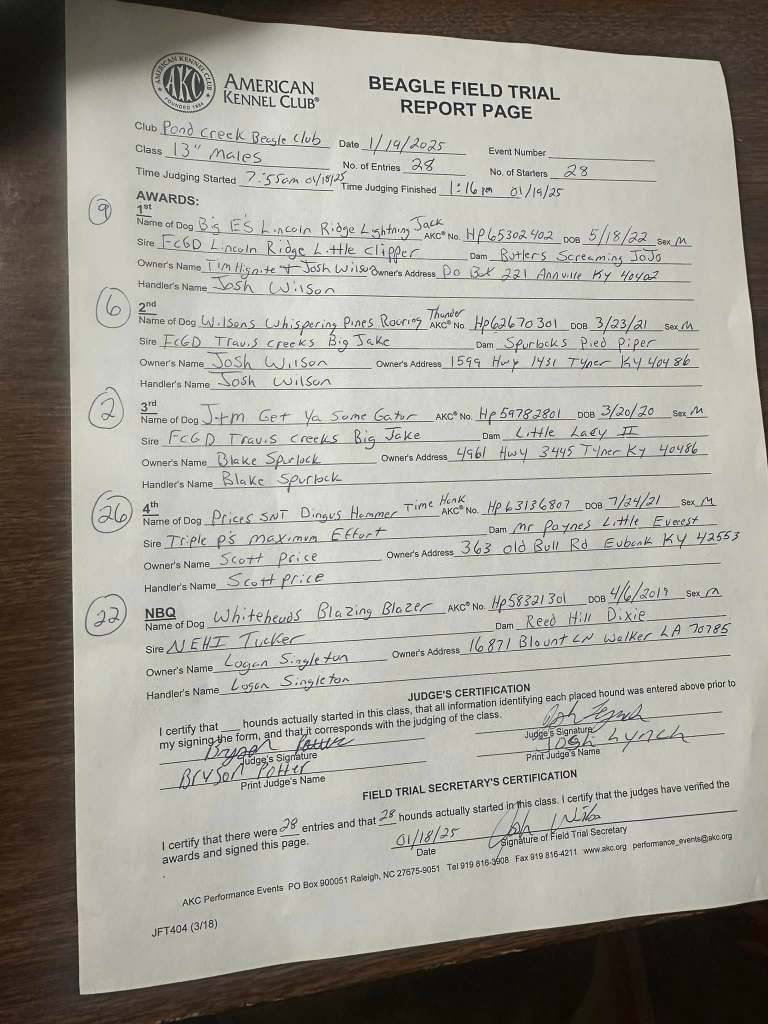 AMERICAN KENNEL CLUB
AKC
FOUNDED 1884
AMERICAN
KENNEL CLUB®
BEAGLE FIELD TRIAL
REPORT PAGE
Club Pond Creek Beagle Club Date 1/19/2025 Event Number
Class 13" Males No. of Entries 28 No. of Starters 28
Time Judging Started 7:55am 01/18/25 Time Judging Finished 1:16 pm 01/19/25
AWARDS:
9
1st
Name of Dog Big E'S Lincoln Ridge Lightning Jack AKC® No. HP65302402 DOB 5/18/22 Sex M
Sire FCGD Lincoln Ridge Little Clipper Dam Butlers Screaming JoJo
Owner's Name Tim Hignite + Josh Wilson Owner's Address PO Box 221 Annville Ky 40402
Handler's Name Josh Wilson
6
2nd
Name of Dog Wilsons Whispering Pines Roaring Thunder AKC® No. Hp62670301 DOB 3/23/21 Sex M
Sire FCGD Travis creeks Big Jake Dam Spurlocks Pied Piper
Owner's Name Josh Wilson Owner's Address 1599 Hwy 1431 Tyner KY 40486
Handler's Name Josh Wilson
2
3rd
Name of Dog J+m Get Ya Some Gator AKC® No. Hp59782801 DOB 3/20/20 Sex M
Sire FCGD Travis Creeks Big Jake Dam Little Lady II
Owner's Name Blake Spurlock Owner's Address 4961 Hwy 3445 Tyner Ky 40486
Handler's Name Blake Spurlock
26
4th
Name of Dog Prices SNT Dingus Hammer Time Hank AKC® No. Hp63136807 DOB 7/24/21 Sex M
Sire Triple P's maximum Effort Dam Mr Paynes Little Everest
Owner's Name Scott Price Owner's Address 363 old Bull Rd Eubank KY 42553
Handler's Name Scott Price
22
NBQ
Name of Dog Whiteheads Blazing Blazer AKC® No. Hp58321301 DOB 4/6/2019 Sex M
Sire NEHI Tucker Dam Reed Hill Dixie
Owner's Name Logan Singleton Owner's Address 16871 Blount LN Walker LA 70785
Handler's Name Logan Singleton
JUDGE'S CERTIFICATION
I certify that ___ hounds actually started in this class, that all information identifying each placed hound was entered above prior to
my signing the form, and that it corresponds with the judging of the class.
Bryson Potter Josh Lynch
Judge's Signature Judge's Signature
Bryson Potter Josh Lynch
Print Judge's Name Print Judge's Name
FIELD TRIAL SECRETARY'S CERTIFICATION
I certify that there were 28 entries and that 28 hounds actually started in this class. I certify that the judges have verified the
awards and signed this page.
01/18/25 Josh Wilson
Date Signature of Field Trial Secretary
AKC Performance Events PO Box 900051 Raleigh, NC 27675-9051 Tel 919 816-3908 Fax 919 816-4211 www.akc.org performance_events@akc.org
JFT404 (3/18)